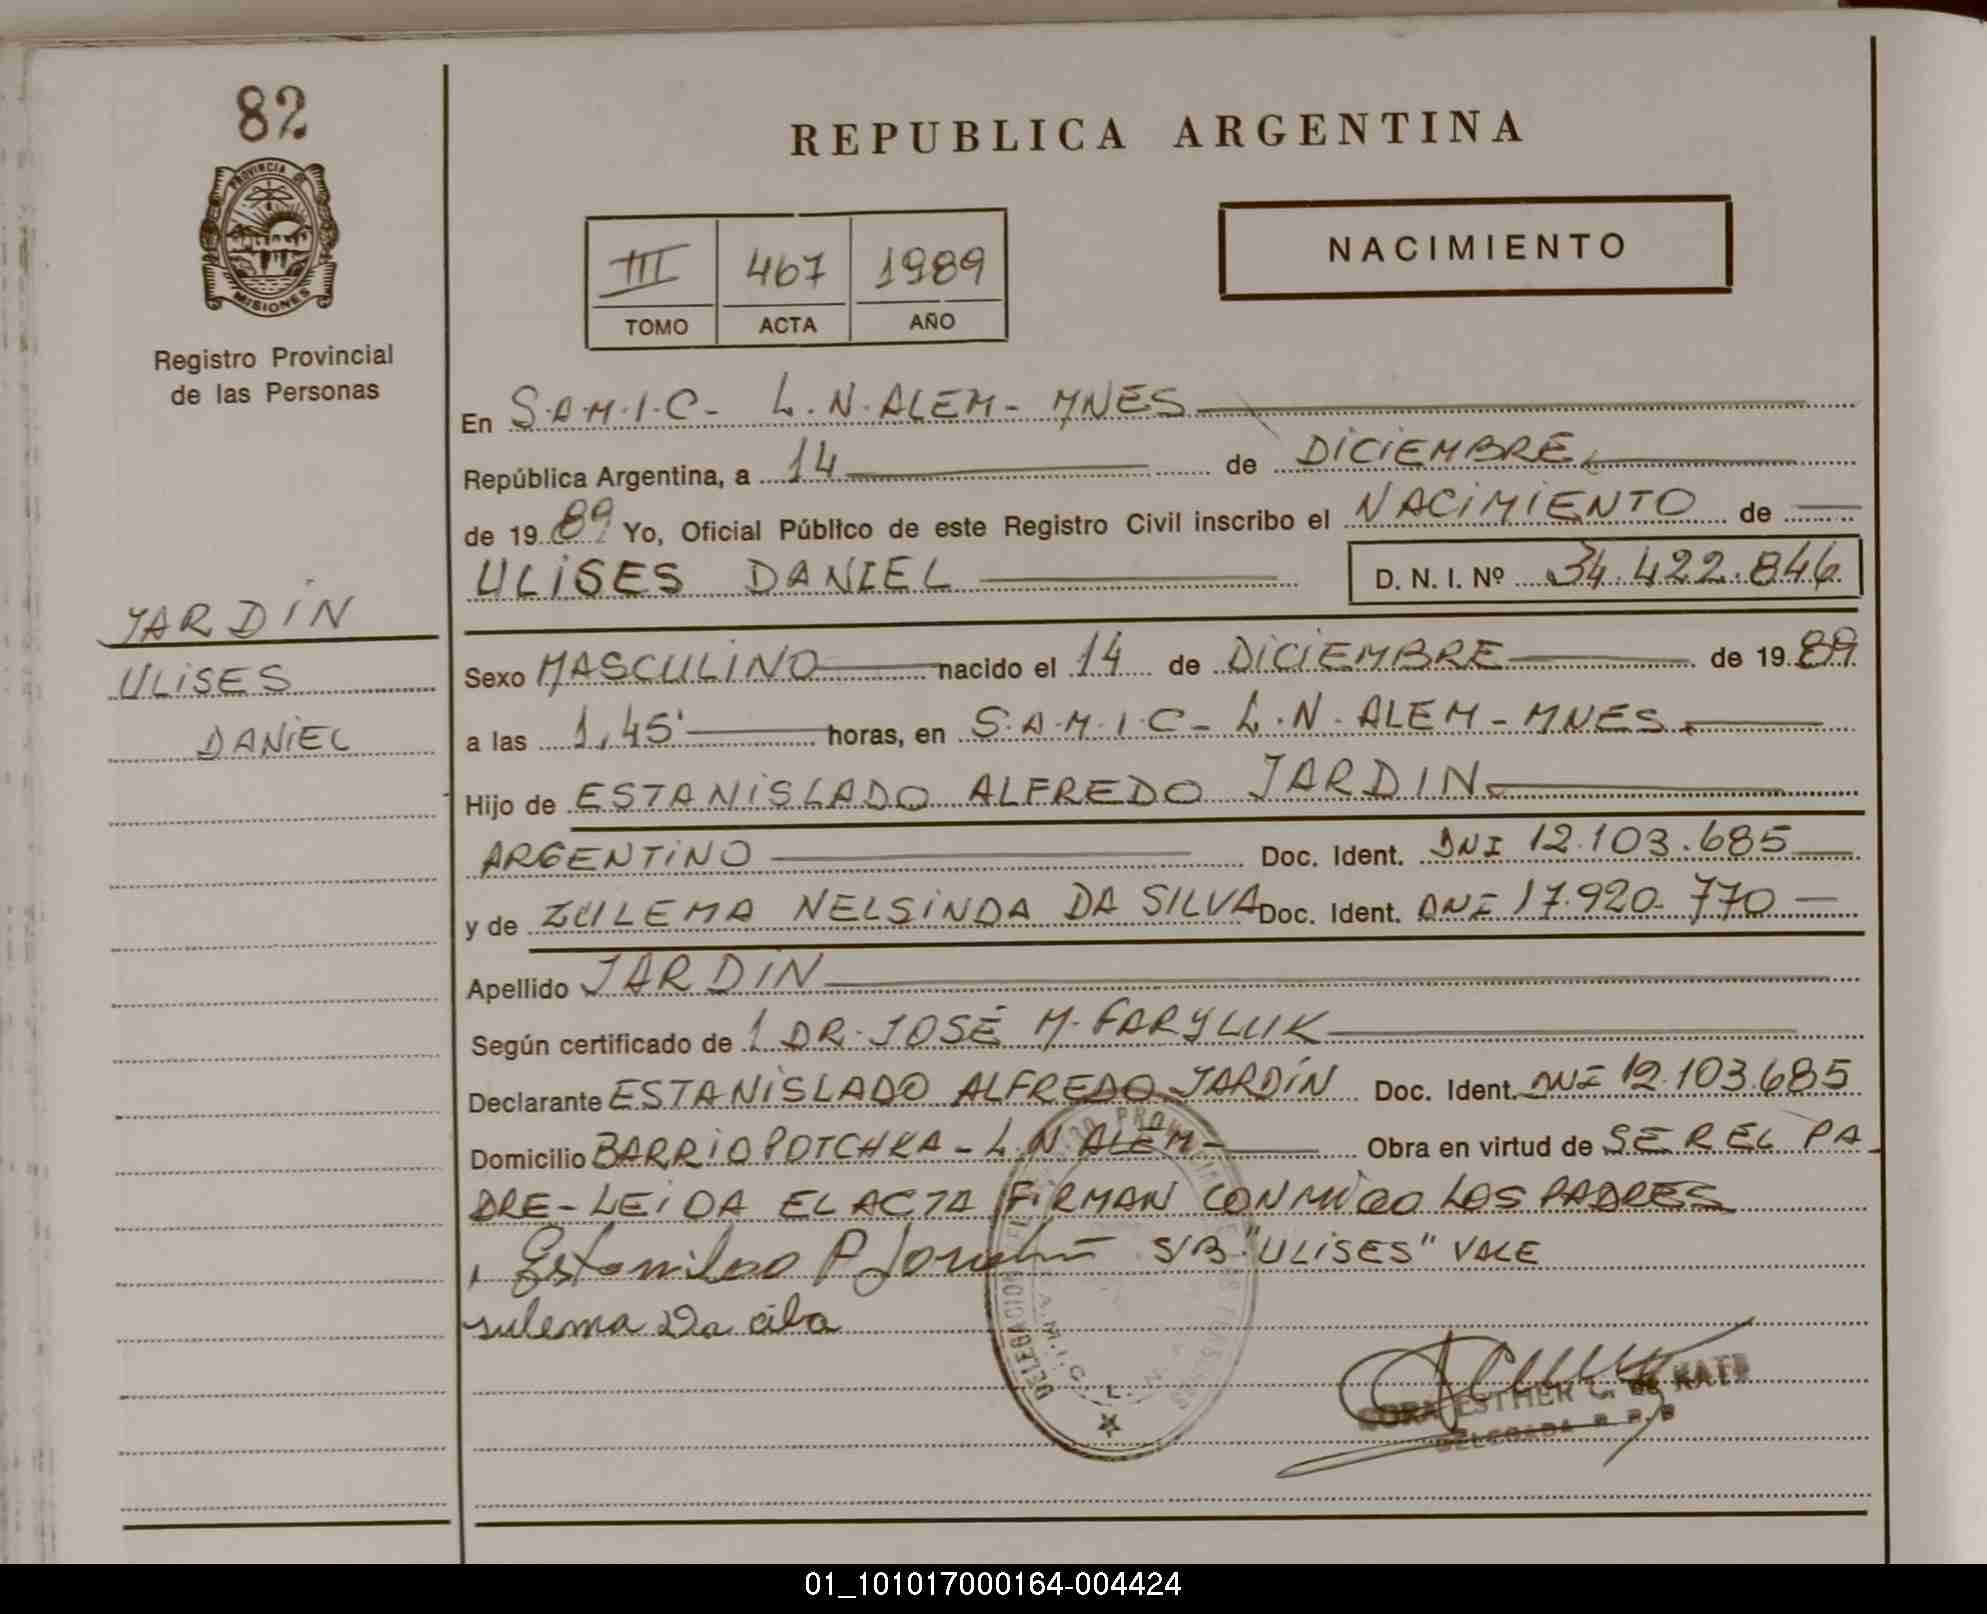 82
PROVINCIA DE
MISIONES
Registro Provincial
de las Personas
JARDIN
ULISES
DANIEL
REPUBLICA ARGENTINA
NACIMIENTO
III 467 1989
TOMO ACTA AÑO
En S.A.M.I.C- L.N.ALEM- MNES
República Argentina, a 14 de DICIEMBRE
de 1989 Yo, Oficial Público de este Registro Civil inscribo el NACIMIENTO de
ULISES DANIEL D. N. I. Nº 34.422.846
Sexo MASCULINO nacido el 14 de DICIEMBRE de 1989
a las 1,45' horas, en S.A.M.I.C- L.N.ALEM-MNES
Hijo de ESTANISLADO ALFREDO JARDIN
ARGENTINO Doc. Ident. DNI 12.103.685
y de ZULEMA NELSINDA DA SILVA Doc. Ident. DNI 17.920.770
Apellido JARDIN
Según certificado de 1 DR. JOSÉ M. FARYLUK
Declarante ESTANISLADO ALFREDO JARDÍN Doc. Ident. DNI 12.103.685
Domicilio BARRIO POTCHKA - L.N ALEM- Obra en virtud de SER EL PA
DRE-LEIDA EL ACTA FIRMAN CONMIGO LOS PADRES
S/B "ULISES" VALE
sulema Da cilva
DELEGADA R.P.P
01_101017000164-004424